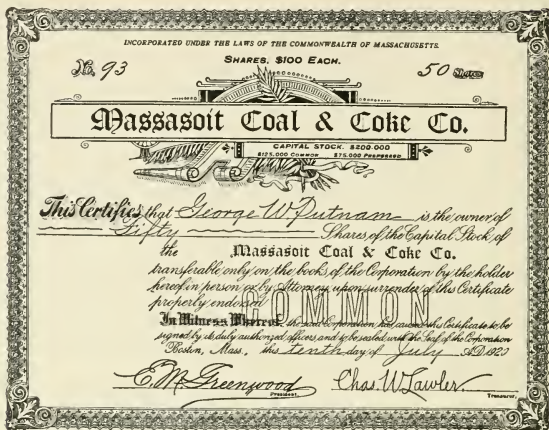 INCORPORATED UNDER THE LAWS OF THE COMMONWEALTH OF MASSACHUSETTS.
No. 93
SHARES, $100 EACH.
50 Shares
Massasoit Coal & Coke Co.
CAPITAL STOCK. $200.000
$125.000 COMMON $75.000 PREFERRED
This Certifies that George W Putnam is the owner of
Fifty Shares of the Capital Stock of
the Massasoit Coal & Coke Co.
transferable only on the books of the Corporation by the holder
hereof in person or by Attorney upon surrender of this Certificate
properly endorsed
COMMON
In Witness Whereof, the said Corporation has caused this Certificate to be
signed by its duly authorized officers and to be sealed with the Seal of the Corporation
Boston, Mass. this tenth day of July A.D. 1920
E. M. Greenwood
President.
Chas. W. Lawler.
Treasurer.